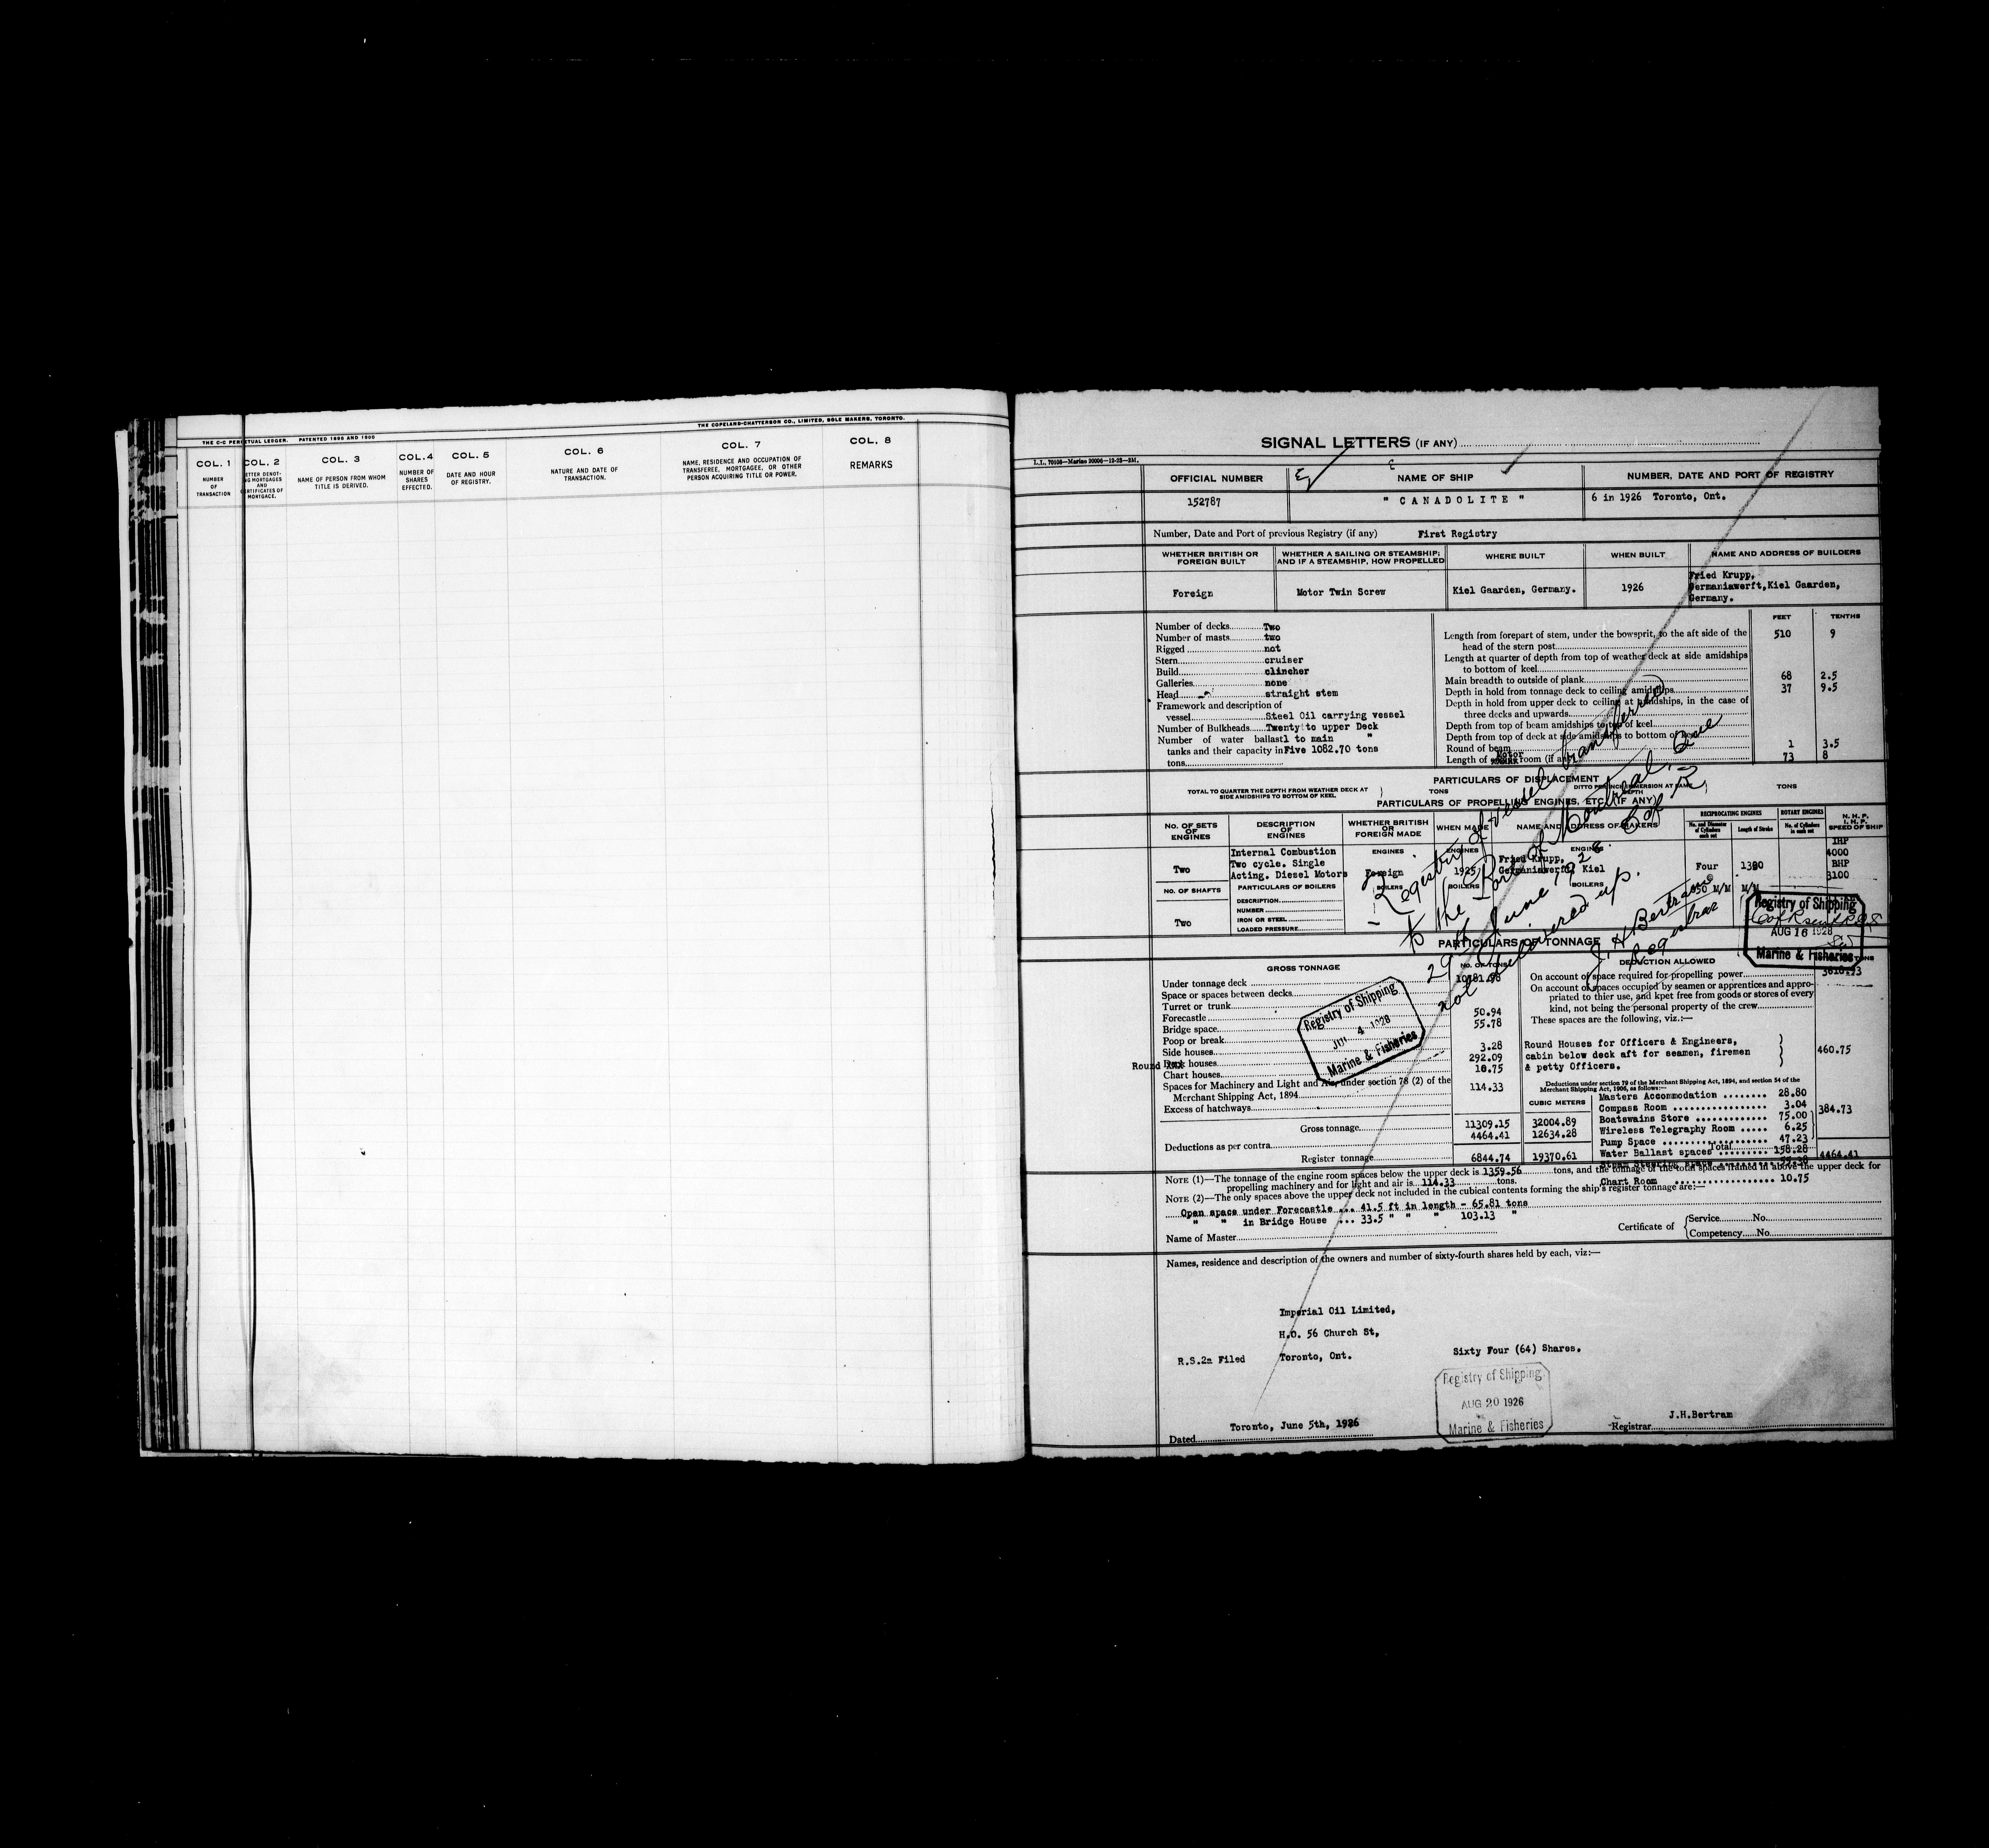 THE C-C PERPETUAL LEDGER. PATENTED 1895 AND 1900
THE COPELAND-CHATTERSON CO., LIMITED, SOLE MAKERS, TORONTO.
COL. 1
NUMBER
OF
TRANSACTION
COL. 2
ETTER DENOT-
NG MORTGAGES
AND
CERTIFICATES OF
MORTGAGE.
COL. 3
NAME OF PERSON FROM WHOM
TITLE IS DERIVED.
COL. 4
NUMBER OF
SHARES
EFFECTED.
COL. 5
DATE AND HOUR
OF REGISTRY.
COL. 6
NATURE AND DATE OF
TRANSACTION.
COL. 7
NAME, RESIDENCE AND OCCUPATION OF
TRANSFEREE, MORTGAGEE, OR OTHER
PERSON ACQUIRING TITLE OR POWER.
COL. 8
REMARKS
SIGNAL LETTERS (IF ANY)
OFFICIAL NUMBER
152787
NAME OF SHIP
" CANADOLITE "
NUMBER, DATE AND PORT OF REGISTRY
6 in 1926 Toronto, Ont.
Number, Date and Port of previous Registry (if any) First Registry
WHETHER BRITISH OR
FOREIGN BUILT
Foreign
WHETHER A SAILING OR STEAMSHIP;
AND IF A STEAMSHIP, HOW PROPELLED
Motor Twin Screw
WHERE BUILT
Kiel Gaarden, Germany.
WHEN BUILT
1926
NAME AND ADDRESS OF BUILDERS
Fried Krupp,
Germaniawerft,Kiel Gaarden,
Germany.
Number of decks Two
Number of masts two
Rigged not
Stern cruiser
Build clincher
Galleries none
Head straight stem
Framework and description of
vessel Steel Oil carrying vessel
Number of Bulkheads Twenty to upper Deck
Number of water ballast 1 to main "
tanks and their capacity in Five 1082.70 tons
tons
FEET TENTHS
Length from forepart of stem, under the bowsprit, to the aft side of the
head of the stern post 510 9
Length at quarter of depth from top of weather deck at side amidships
to bottom of keel
Main breadth to outside of plank 68 2.5
Depth in hold from tonnage deck to ceiling amidships 37 9.5
Depth in hold from upper deck to ceiling at amidships, in the case of
three decks and upwards
Depth from top of beam amidships to top of keel
Depth from top of deck at side amidships to bottom of keel
Round of beam 1 3.5
Length of Motor room (if any) 73 8
PARTICULARS OF DISPLACEMENT
TOTAL TO QUARTER THE DEPTH FROM WEATHER DECK AT
SIDE AMIDSHIPS TO BOTTOM OF KEEL
TONS
DITTO PER INCH IMMERSION AT SAME
DEPTH
TONS
PARTICULARS OF PROPELLING ENGINES, ETC. (IF ANY)
No. OF SETS
OF
ENGINES
Two
NO. OF SHAFTS
Two
DESCRIPTION
OF
ENGINES
Internal Combustion
Two cycle. Single
Acting. Diesel Motors
PARTICULARS OF BOILERS
DESCRIPTION
NUMBER
IRON OR STEEL
LOADED PRESSURE
WHETHER BRITISH
OR
FOREIGN MADE
ENGINES
Foreign
BOILERS
WHEN MADE
ENGINES
1925
BOILERS
NAME AND ADDRESS OF MAKERS
ENGINES
Fried Krupp,
Germaniawerft, Kiel
BOILERS
RECIPROCATING ENGINES
No. and Diameter
of Cylinders
each set
Four
650 M/M
Length of Stroke
M/M
ROTARY ENGINES
No. of Cylinders
in each set
N. H. P.
I. H. P.
SPEED OF SHIP
IHP
4000
BHP
3100
Registry of vessel transferred
to the Port of Montreal, Que
29th June 1928. C of R
not delivered up.
J H Bertram
Registrar
Registry of Shipping
AUG 16 1928
Marine & Fisheries
PARTICULARS OF TONNAGE
GROSS TONNAGE
No. OF TONS
Under tonnage deck
Space or spaces between decks
Turret or trunk
Forecastle 50.94
Bridge space 55.78
Poop or break
Side houses 3.28
Round houses 292.09
Chart houses 10.75
Spaces for Machinery and Light and Air, under section 78 (2) of the
Merchant Shipping Act, 1894 114.33
Excess of hatchways
CUBIC METERS
Gross tonnage 11309.15 32004.89
Deductions as per contra 4464.41 12634.28
Register tonnage 6844.74 19370.61
Registry of Shipping
4 1928
Marine & Fisheries
DEDUCTION ALLOWED
On account of space required for propelling power
On account of spaces occupied by seamen or apprentices and appro-
priated to thier use, and kpet free from goods or stores of every
kind, not being the personal property of the crew
These spaces are the following, viz.:—
Round Houses for Officers & Engineers,
cabin below deck aft for seamen, firemen 460.75
& petty Officers.
Deductions under section 79 of the Merchant Shipping Act, 1894, and section 54 of the
Merchant Shipping Act, 1906, as follows:—
Masters Accommodation 28.80
Compass Room 3.04
384.73
Boatswains Store 75.00
Wireless Telegraphy Room 6.25
Pump Space 47.23
Total 4464.41
Water Ballast spaces 158.28
Steam Steering space
Chart Room 10.75
NOTE (1)—The tonnage of the engine room spaces below the upper deck is 1359.56 tons, and the tonnage of the total spaces framed in above the upper deck for
propelling machinery and for light and air is 114.33 tons.
NOTE (2)—The only spaces above the upper deck not included in the cubical contents forming the ship's register tonnage are:—
Open space under Forecastle ... 41.5 ft in length - 65.81 tons
" " in Bridge House ... 33.5 " " " 103.13 "
Name of Master
Certificate of
Service No.
Competency No.
Names, residence and description of the owners and number of sixty-fourth shares held by each, viz:—
Imperial Oil Limited,
H.O. 56 Church St,
R.S.2a Filed Toronto, Ont. Sixty Four (64) Shares.
Registry of Shipping
AUG 20 1926
Marine & Fisheries
Dated Toronto, June 5th, 1926
J.H.Bertram
Registrar